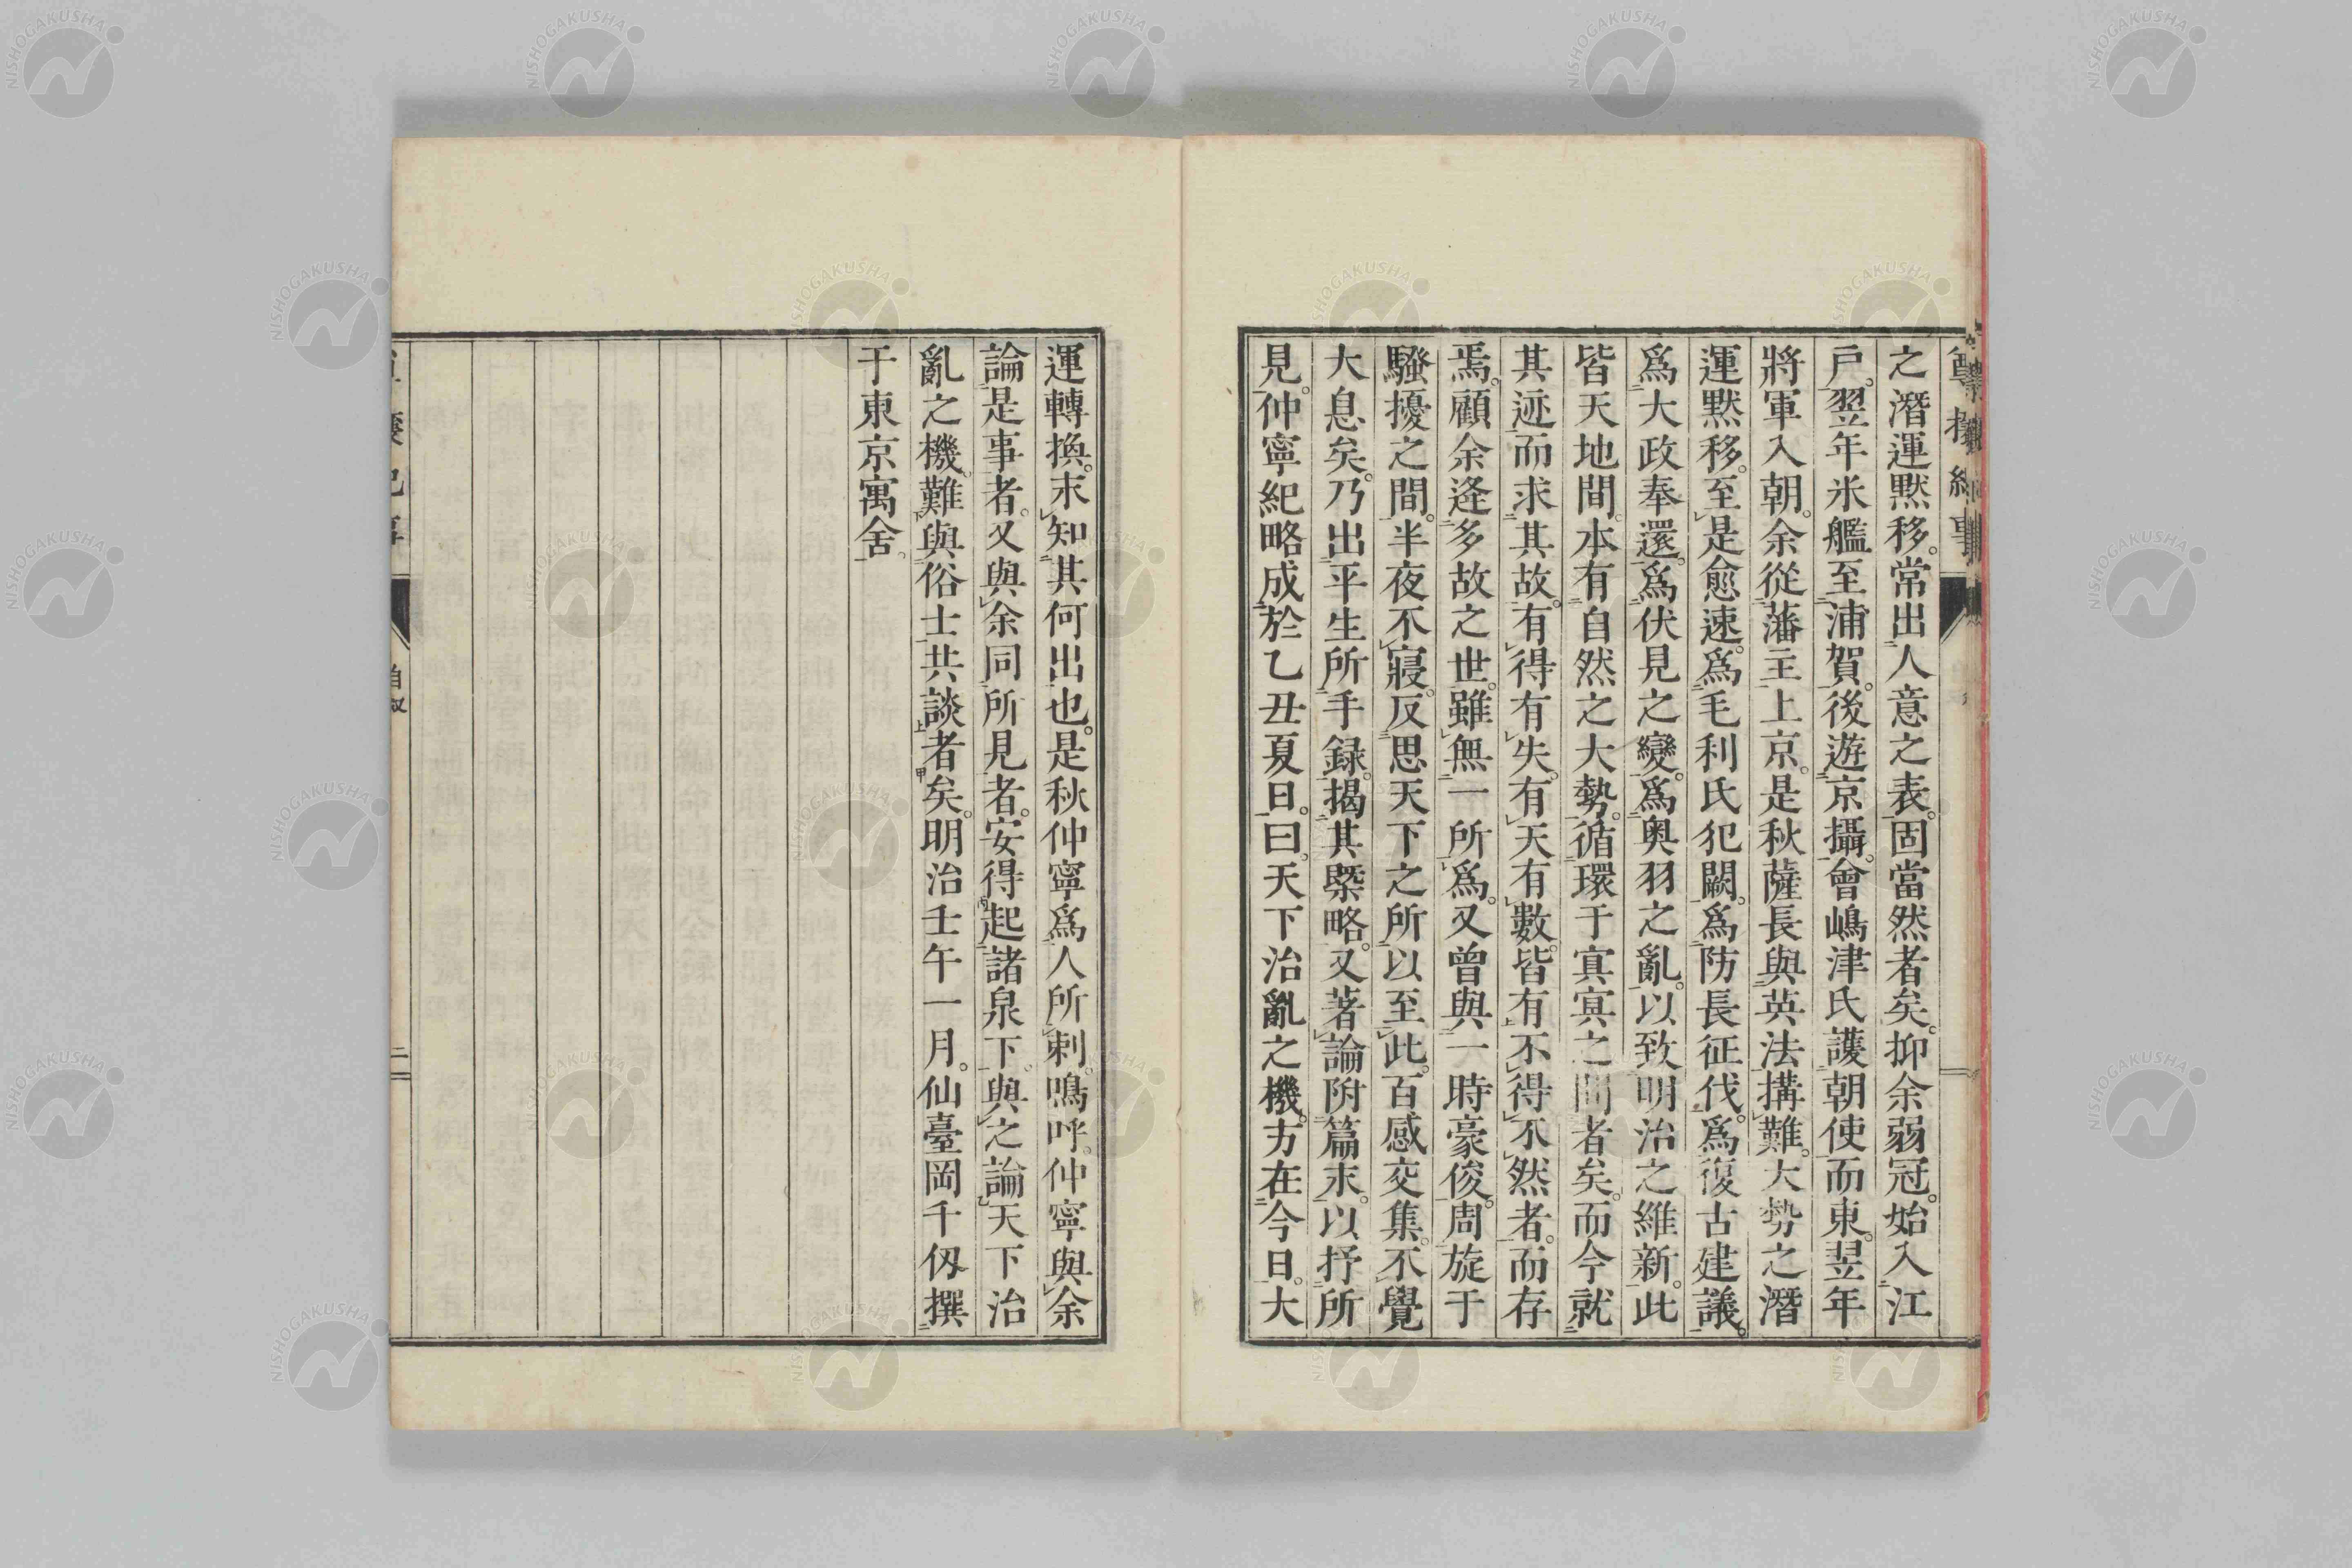 之潛運黙移。常出人意之表。固當然者矣。抑余弱冠。始入江
戸。翌年米艦至浦賀。後遊京攝。會嶋津氏護朝使而東。翌年
將軍入朝。余從藩主上京。是秋薩長與英法搆難。大勢之潛
運黙移。至是愈速。爲毛利氏犯闕。爲防長征伐。爲復古建議。
爲大政奉還。爲伏見之變。爲奥羽之亂。以致明治之維新。此
皆天地間。本有自然之大勢。循環于寘冥之間者矣。而今就
其迹而求其故。有得有失。有天有數。皆有不得不然者。而存
焉。顧余逢多故之世。雖無一所爲。又曾與一時豪俊。周旋于
騷擾之間。半夜不寢。反思天下之所以至此。百感交集。不覺
大息矣。乃出平生所手録。揭其槩略。又著論附篇末。以抒所
見。仲寧紀略成於乙丑夏日。曰。天下治亂之機。方在今日。大
運轉換。末知其何出也。是秋仲寧爲人所刺。鳴呼。仲寧與余
論是事者。又與余同所見者。安得起諸泉下。與之論天下治
亂之機。難與俗士共談者矣。明治壬午一月。仙臺岡千仭撰
于東京寓舍。
自叙
二
NISHOGAKUSHA